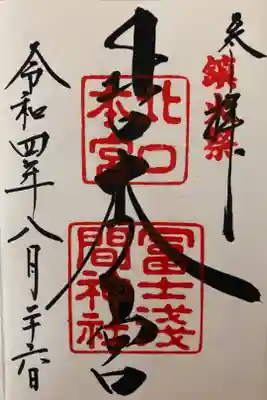 奉拝
鎮火祭
北口本宮
北口
本宮
冨士淺
間神社
令和四年八月二十六日